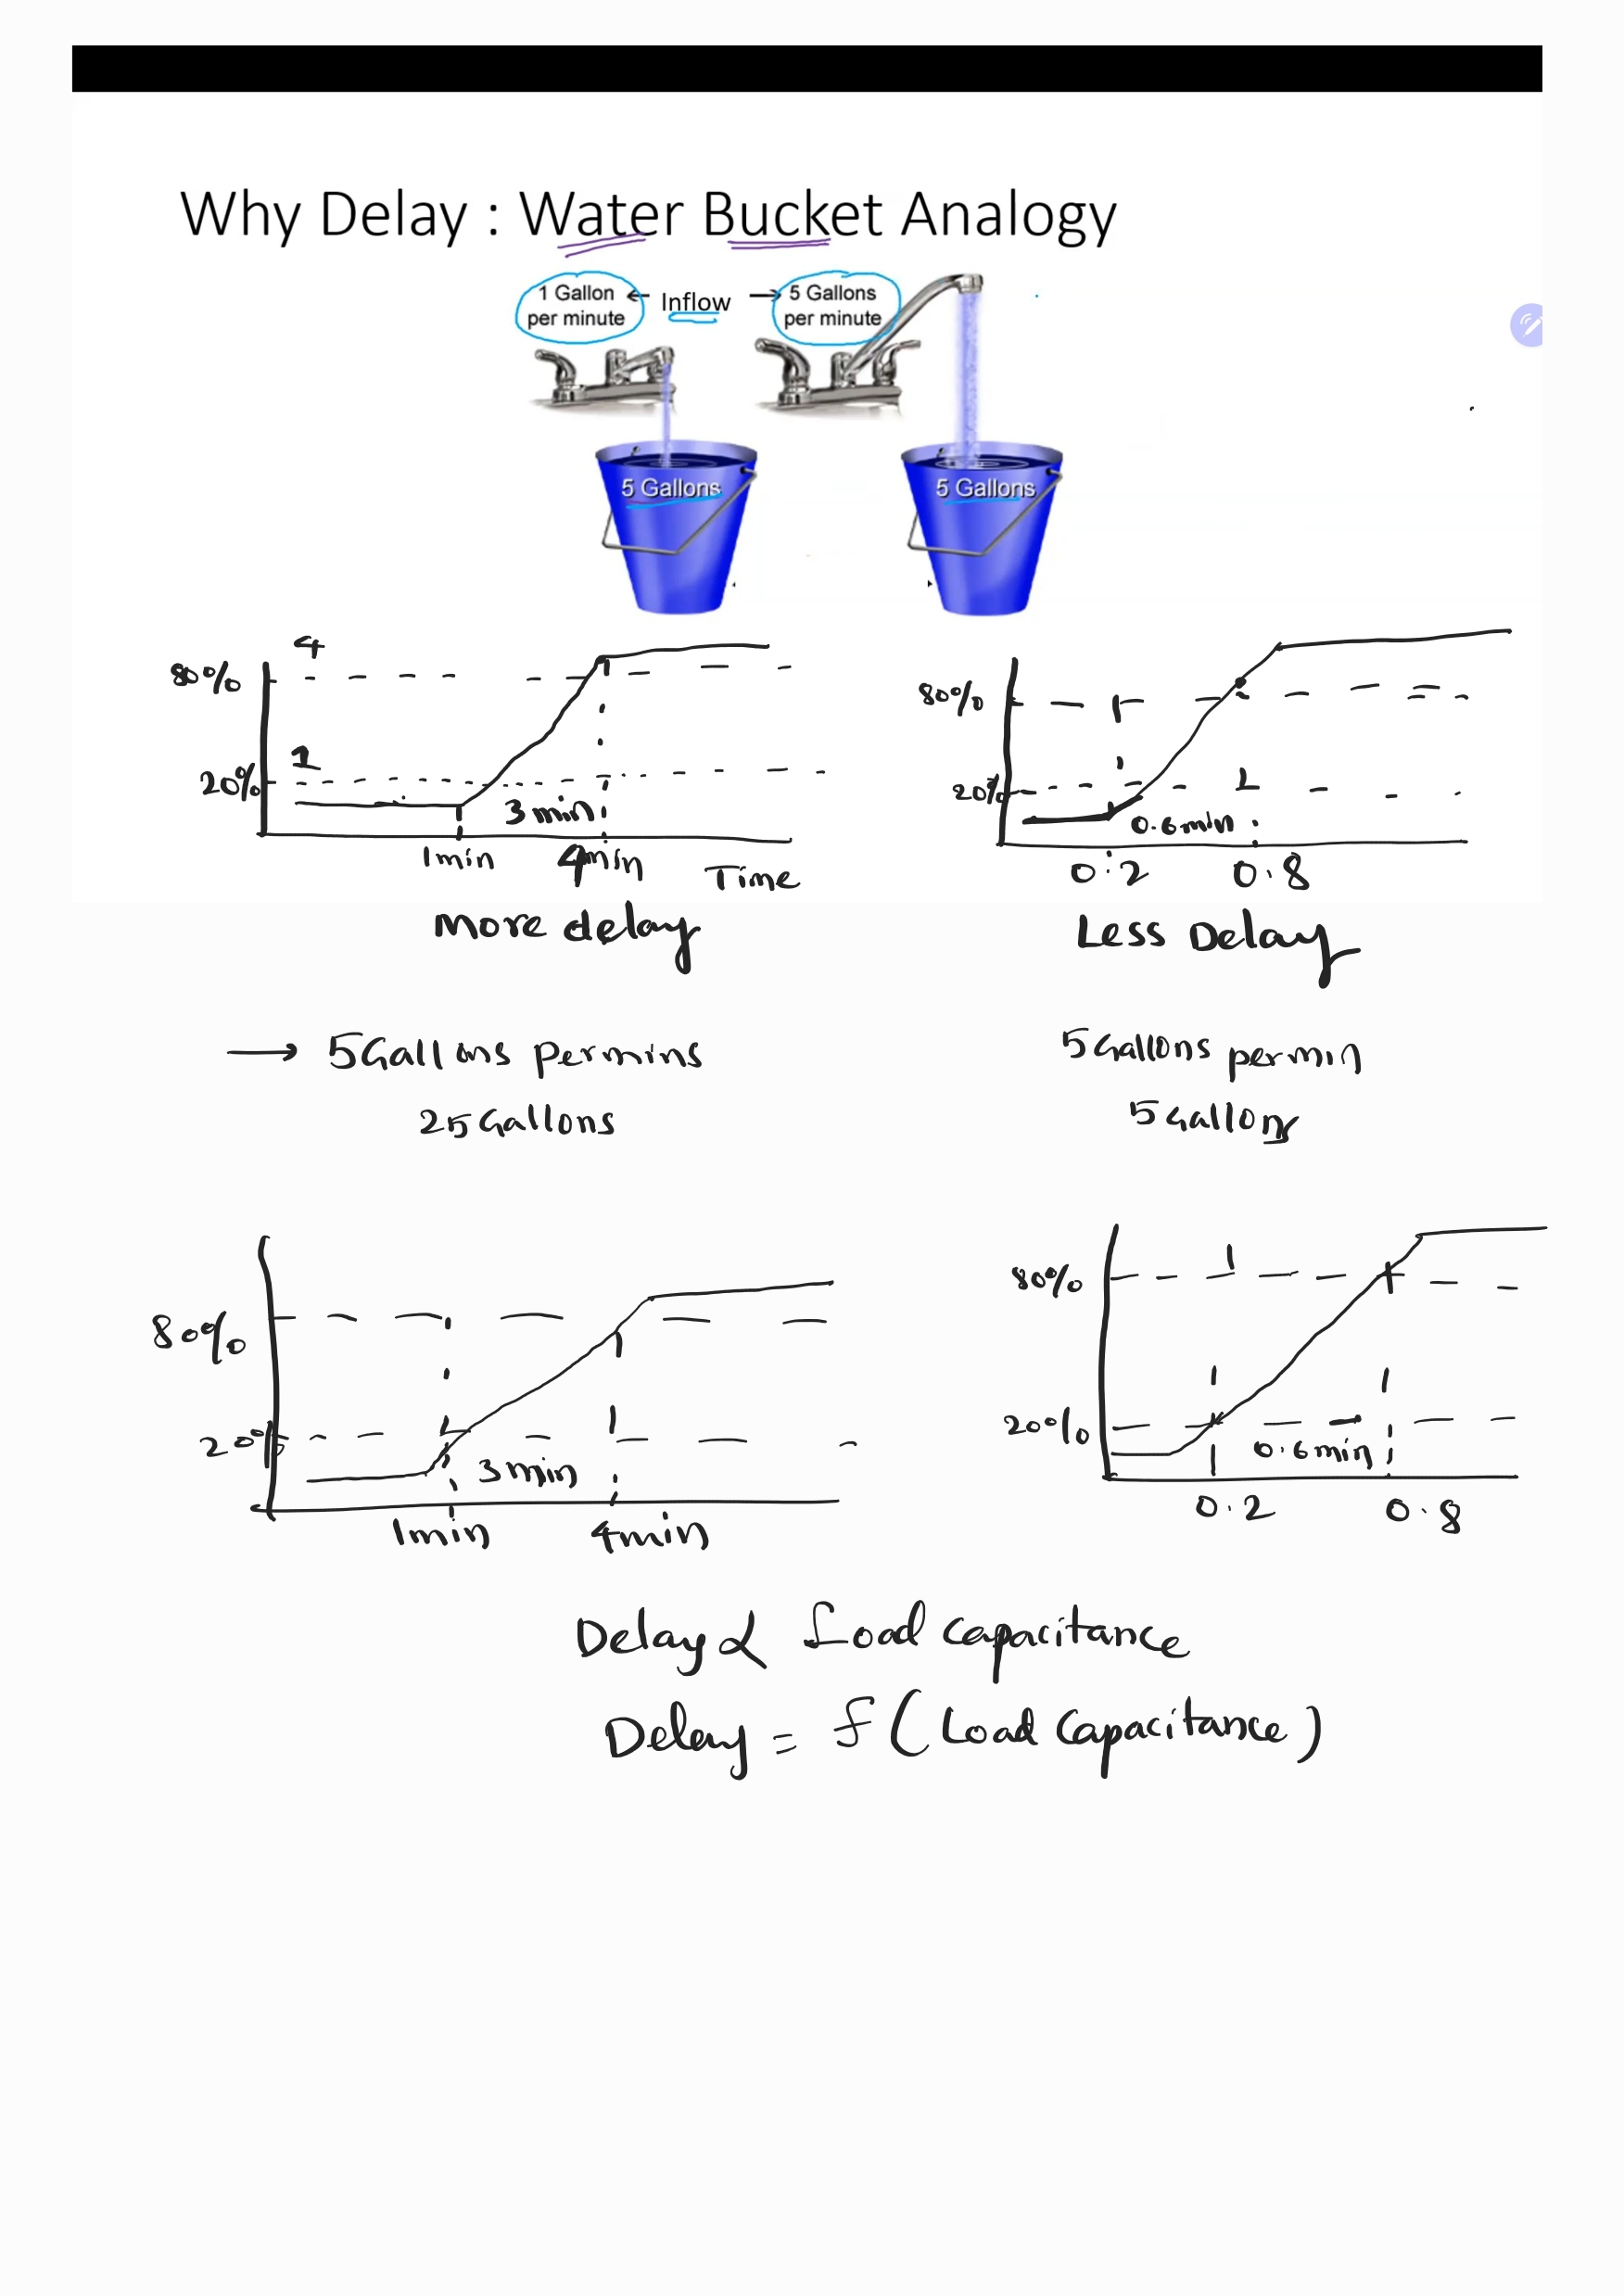 Why Delay : Water Bucket Analogy
1 Gallon per minute ← Inflow → 5 Gallons per minute
5 Gallons
5 Gallons
4
80%
1
20%
3min
1min 4min Time
More delay
80%
20%
0.6min
0.2 0.8
Less Delay
→ 5Gallons Permins
25Gallons
5Gallons permin
5Gallons
80%
20%
3min
1min 4min
80%
20%
0.6min
0.2 0.8
Delay ∝ Load Capacitance
Delay = f(Load Capacitance)